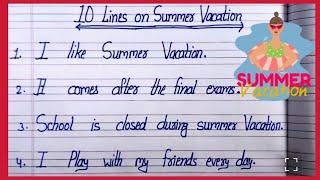 10 Lines on Summer Vacation
1. I like Summer Vacation.
2. It comes after the final exams.
3. School is closed during summer Vacation.
4. I Play with my friends every day.
SUMMER
Vacation